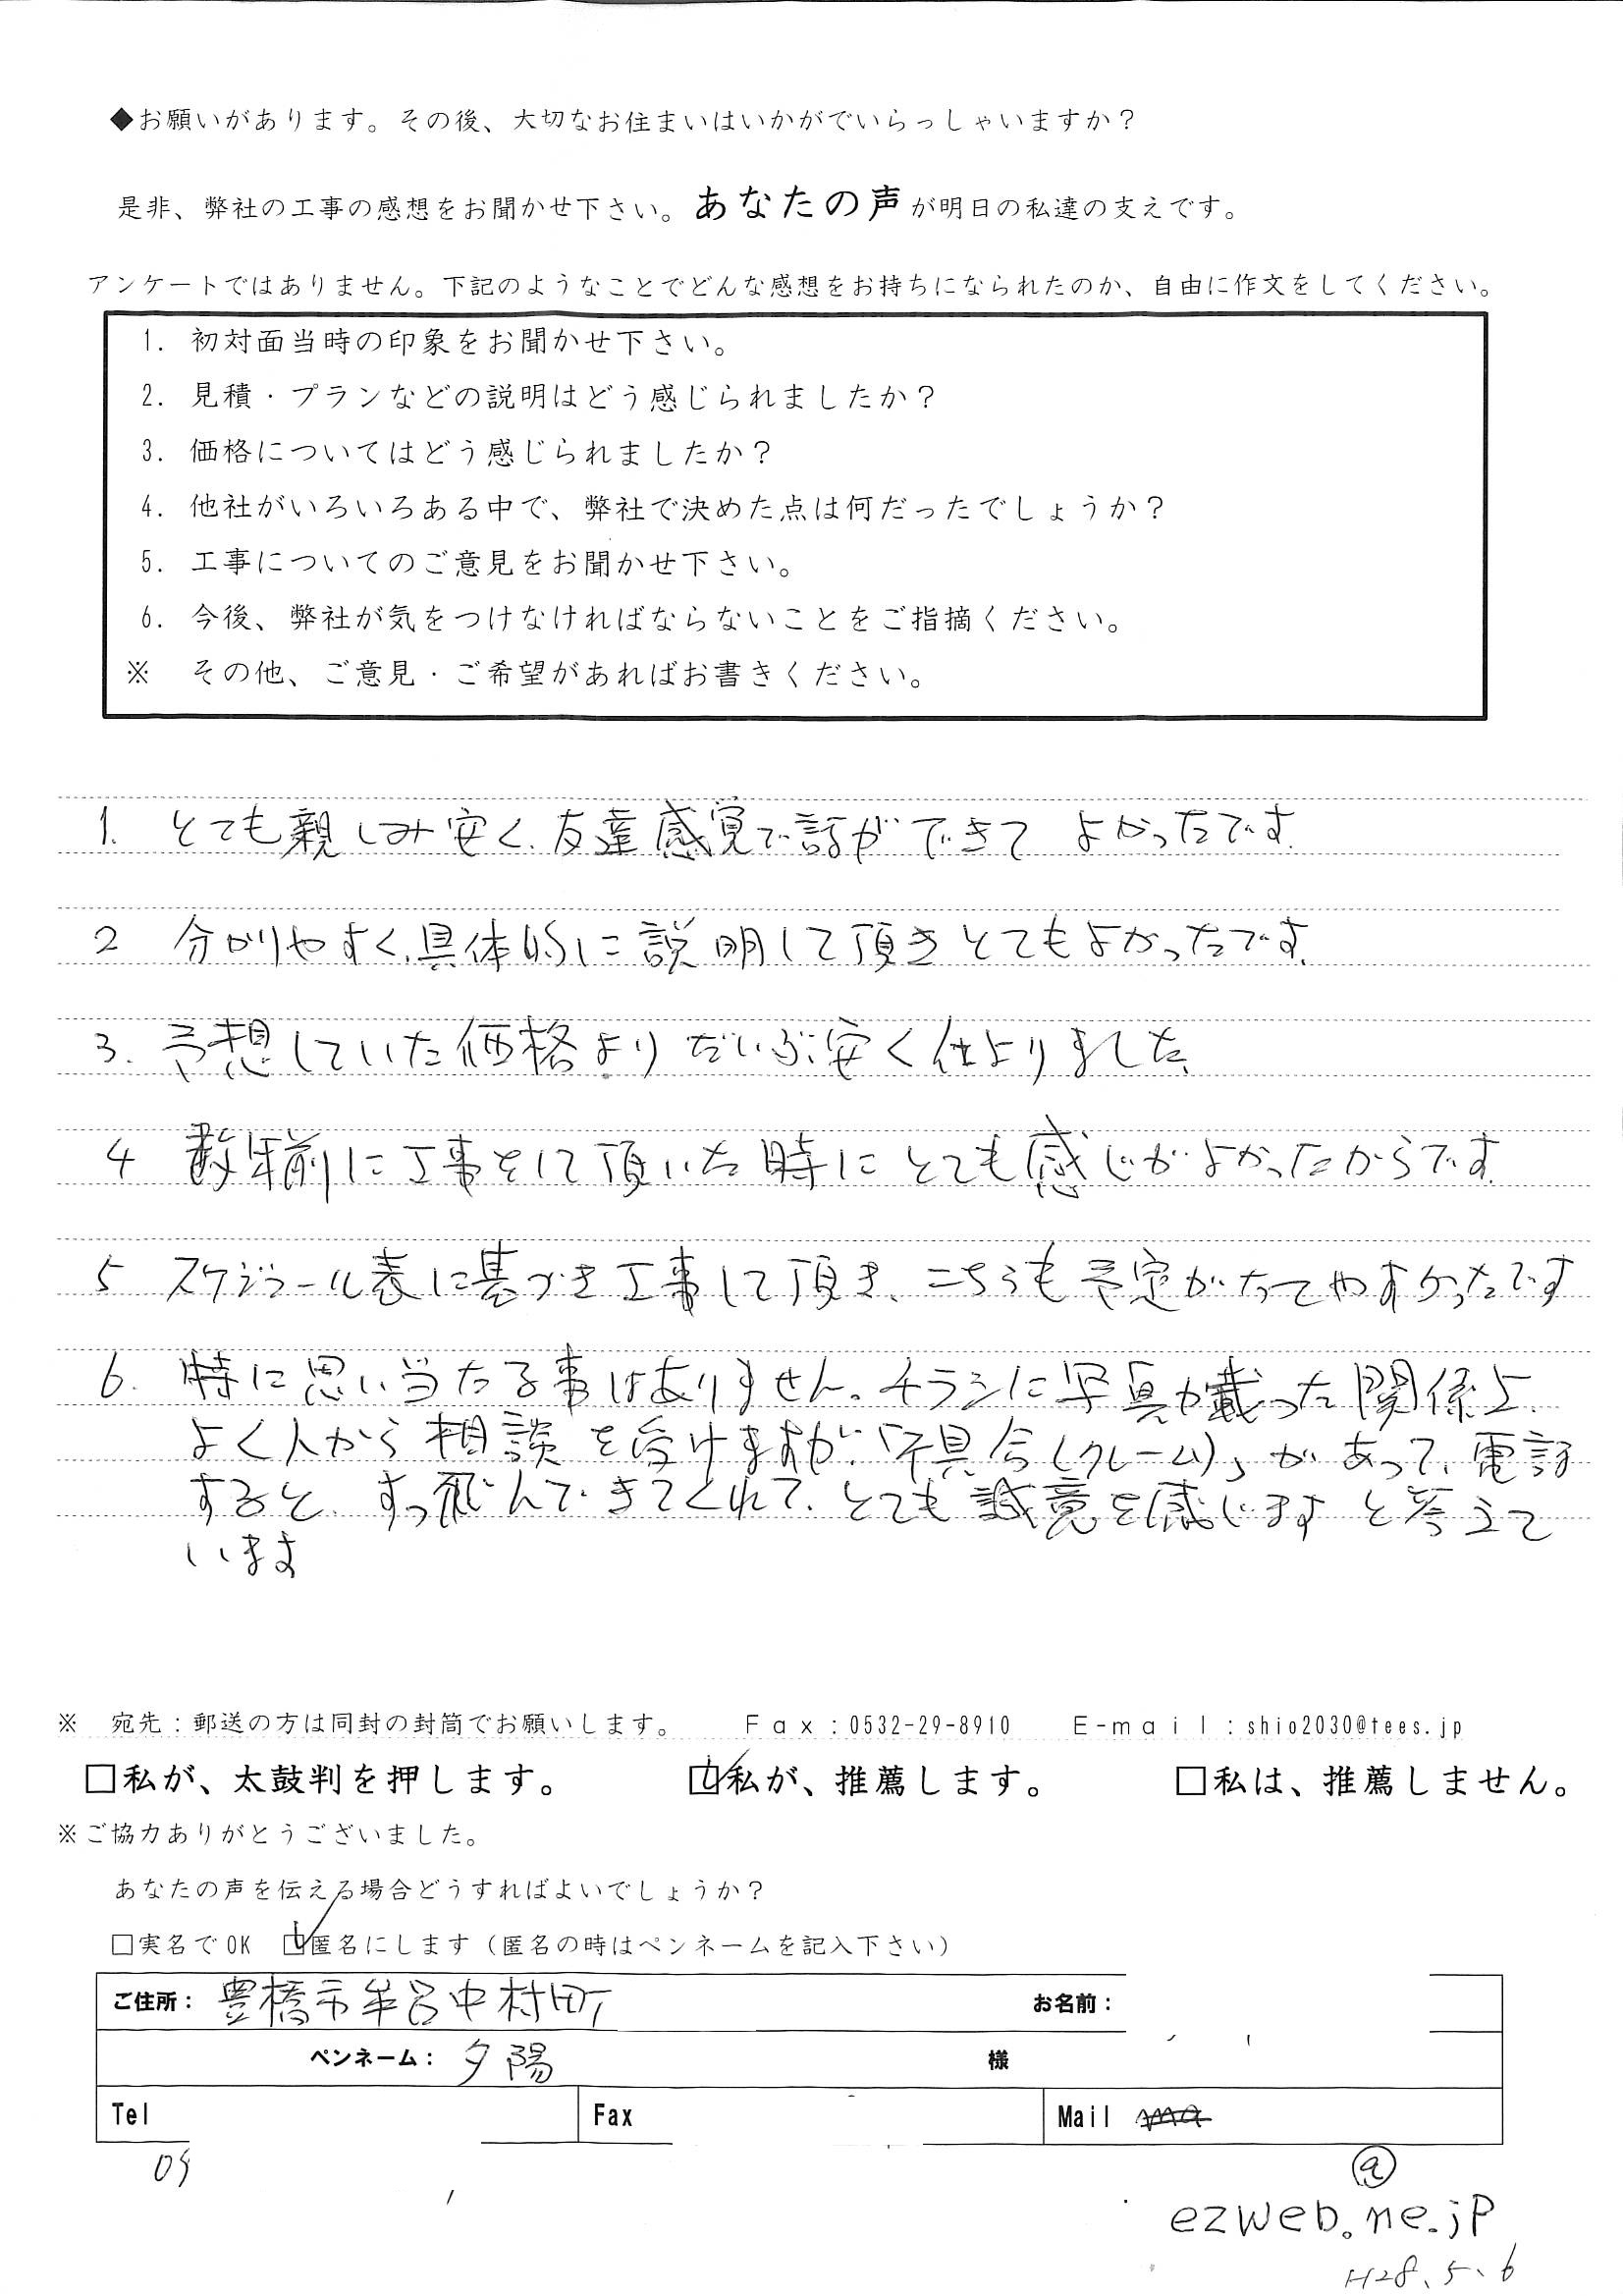 ◆お願いがあります。その後、大切なお住まいはいかがでいらっしゃいますか？
是非、弊社の工事の感想をお聞かせ下さい。あなたの声が明日の私達の支えです。
アンケートではありません。下記のようなことでどんな感想をお持ちになられたのか、自由に作文をしてください。
1. 初対面当時の印象をお聞かせ下さい。
2. 見積・プランなどの説明はどう感じられましたか？
3. 価格についてはどう感じられましたか？
4. 他社がいろいろある中で、弊社で決めた点は何だったでしょうか？
5. 工事についてのご意見をお聞かせ下さい。
6. 今後、弊社が気をつけなければならないことをご指摘ください。
※ その他、ご意見・ご希望があればお書きください。
1. とても親しみ安く、友達感覚で話ができて よかったです.
2 分かりやすく、具体的に説明して頂きとてもよかったです.
3. 予想していた価格よりだいぶ安く仕上りました
4 数年前に工事をして頂いた時にとても感じがよかったからです.
5 スケジュール表に基づき工事して頂き、こちらも予定がたってやすかったです
6. 特に思い当たる事はありません。チラシに写真が載った関係上、
よく人から相談を受けますが、「不具合(クレーム)」があって、電話
すると、すっ飛んできてくれて、とても誠意を感じますと答えて
います
※ 宛先：郵送の方は同封の封筒でお願いします。 Ｆａｘ：0532-29-8910 Ｅ-ｍａｉｌ：shio2030@tees.jp
□私が、太鼓判を押します。 ☑私が、推薦します。 □私は、推薦しません。
※ご協力ありがとうございました。
あなたの声を伝える場合どうすればよいでしょうか？
□実名でOK ☑匿名にします（匿名の時はペンネームを記入下さい）
ご住所： 豊橋市牟呂中村町 お名前：
ペンネーム： 夕陽 様
Tel Fax Mail
09 @
ezweb.ne.jp
H28.5.6